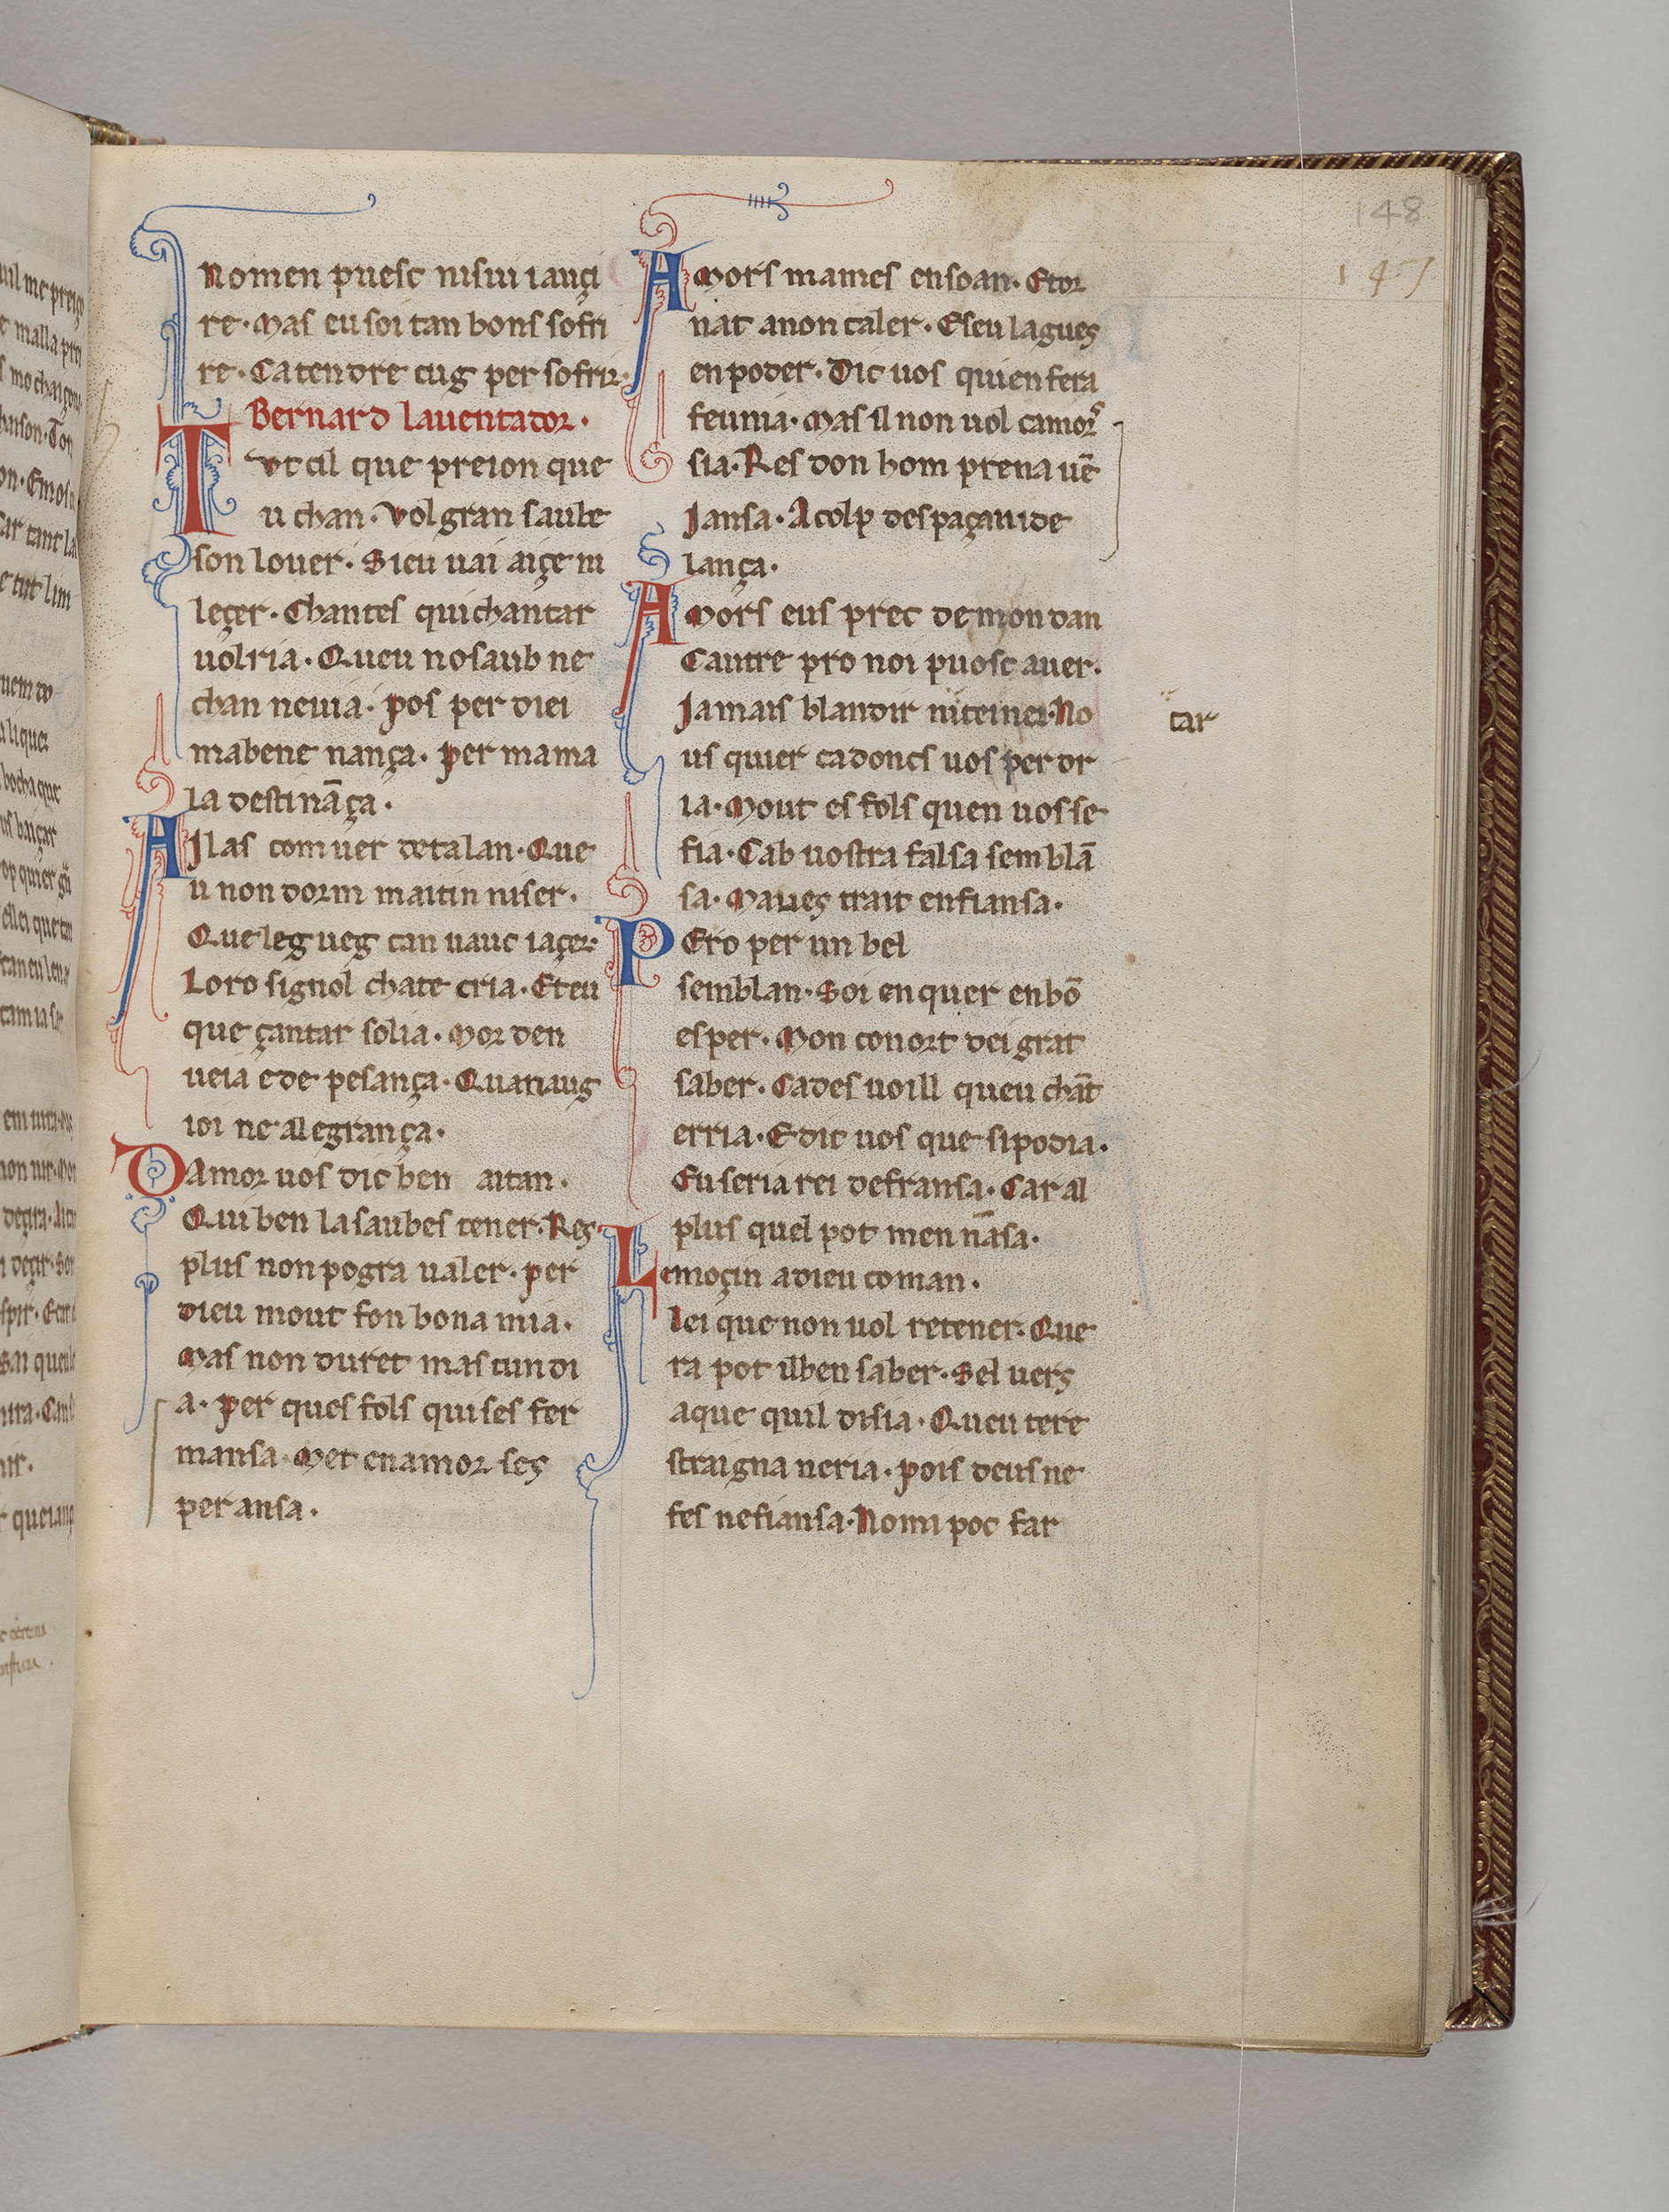 148
147
Nomen puesc nisiui iauçi
re · Mas eu soi tan bons sofri
re · Catendre cug per sofrir ·
Bernard lauentador ·
Tut cil que preion que
u chan · Vol gran saube
son louer · Sieu uai aiçe ni
leçer · Chantes qui chantar
uolria · Queu no saub ne
chan neuia · pos per diei
mabene nança · per mama
la destināça ·
Ailas com uer detalan · Que
u non dorm maitin niser ·
Que leg ueg can uauc iaçer ·
Loro signol chate cria · Eteu
que çantar solia · Mor den
ueia e de pesança · Quan aug
ioi ne alegrança ·
Damor uos dic ben aitan ·
Qui ben la saubes tener · Res
plus non pogra ualer · per
dieu mout fon bona mia ·
Mas non duret mas cun di
a · per ques fols qui ses fer
mansa · Met en amor ses
peransa ·
Amors mames ensoan · Etor
nat anon caler · Eseu lagues
en poder · Dic uos quien fera
feunia · Mas il non uol camors
sia · Res don hom prena uē
Jansa · A colp despaçani de
lança ·
Amors eus prec de mon dan
Cautre pro noi puosc auer ·
Jamais blandir niteiner · No
us quier cadoncs uos per dr
ia · Mout es fols quen uos se
fia · Cab uostra falsa semblā
sa · Maues trait enfiansa ·
Pero per un bel
semblan · Soi enquer enbō
esper · Mon conort dei grat
saber · Cades uoill queu chāt
erria · E dic uos que sipodia ·
Eu seria rei defransa · Car al
plus quel pot men nāsa ·
Lemoçin adieu coman ·
lei que non uol retener · Que
ra pot il ben saber · Sel uers
aque quil disia · Queu tere
straigna neria · pois deus ne
fes nefiansa · Nomi poc far
tar